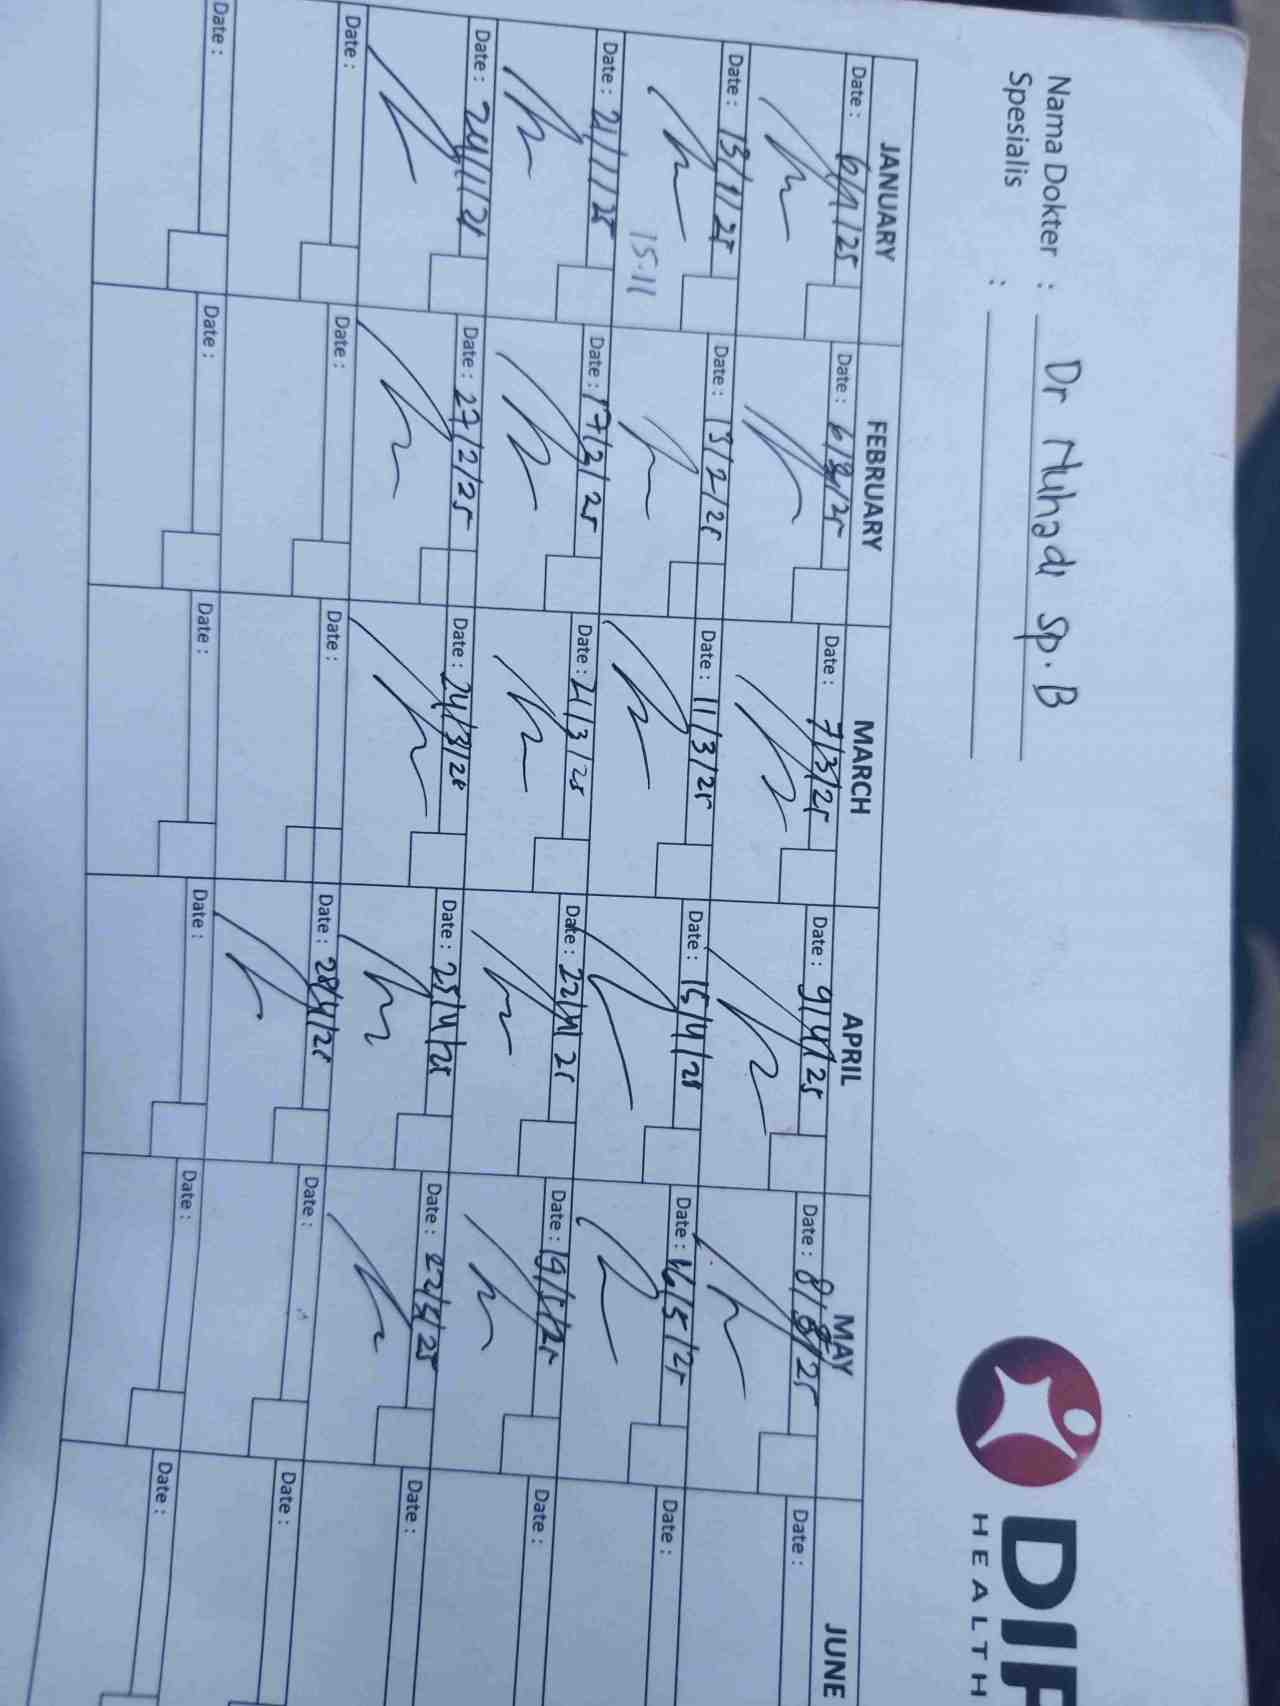 Nama Dokter : Dr Nuhadi Sp. B
Spesialis :
HEALTH
JANUARY FEBRUARY MARCH APRIL MAY JUNE
Date : 6/1/25 Date : 6/2/25 Date : 7/3/25 Date : 9/4/25 Date : 8/5/25 Date :
Date : 13/1/25 Date : 13/2/25 Date : 11/3/25 Date : 15/4/25 Date : 16/5/25 Date :
15.11
Date : 21/1/25 Date : 17/2/25 Date : 21/3/25 Date : 22/4/25 Date : 19/5/25 Date :
Date : 24/1/25 Date : 27/2/25 Date : 24/3/25 Date : 25/4/25 Date : 22/5/25 Date :
Date : Date : Date : Date : 28/4/25 Date : Date :
Date : Date : Date : Date : Date : Date :